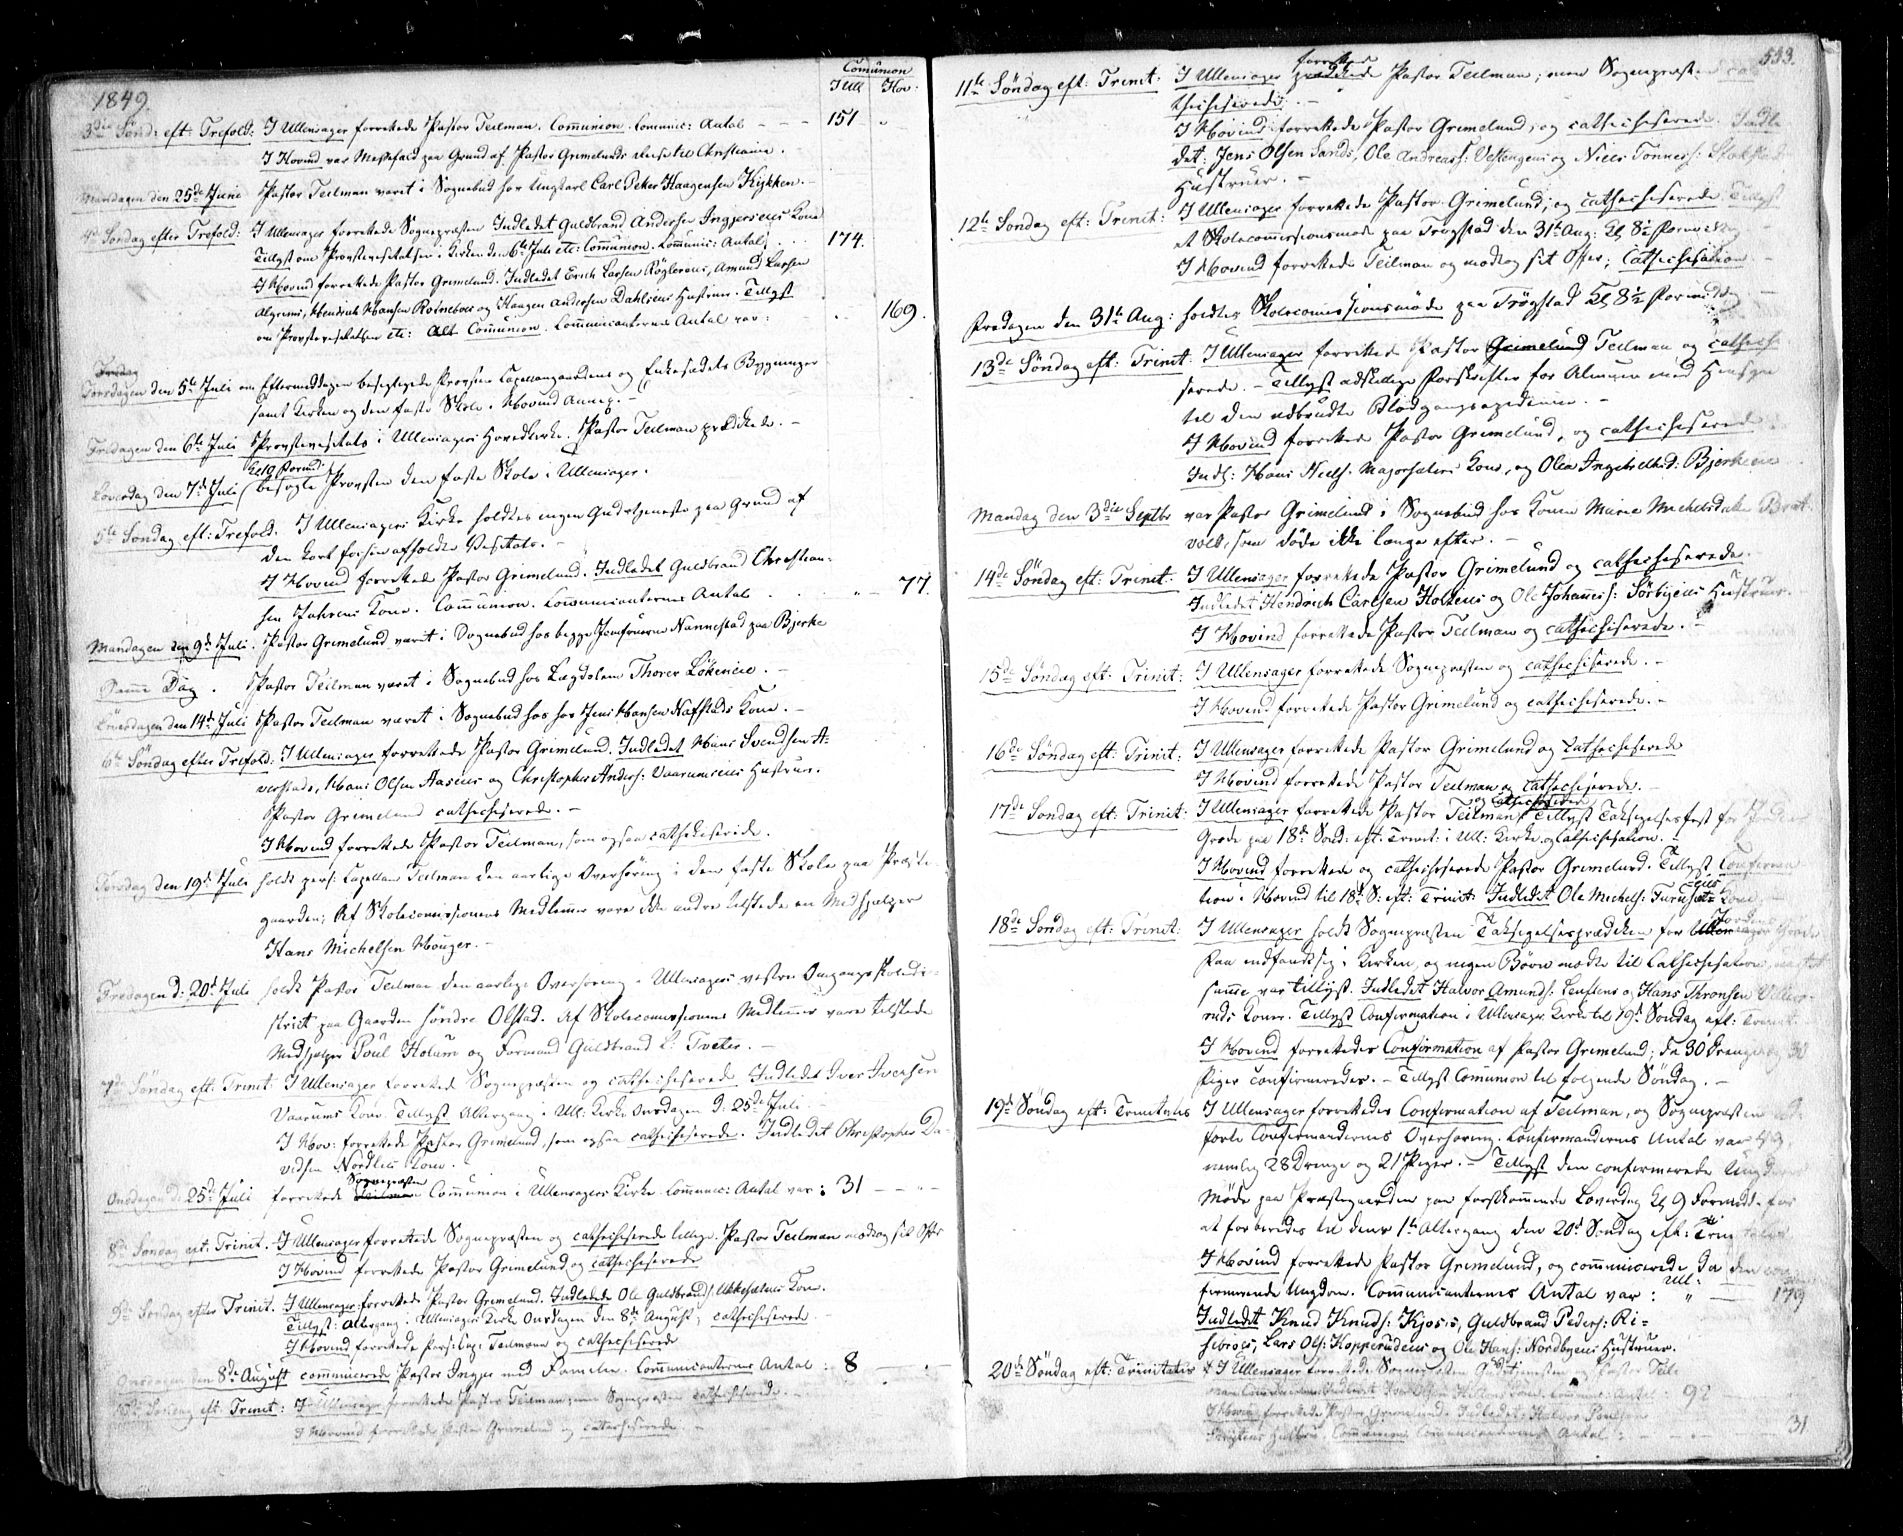 1849.
Comunion
Ull Hov:
3die Sønd: eft: Trefold: I Ullensager forrettede Pastor Teilman. Comunion. Comunic: Antal - - - 151 "
I Hovind var Messefald paa Grund af Pastor Grimelunds Reise til Christiania.
Mandagen den 25de Juni Pastor Teilman været i Sognebud hos Ungkarl Carl Peter Haagensen Kykken. -
4de Søndag efter Trefold: I Ullensager forrettede Sognepræsten Indledet Guldbrand Andersen Kone
Tillyst om Provstevisitatsen i Kirken den 6te Juli etc: Comunion. Comunic: Antal . . . 174.
I Hovind forrettede Pastor Grimelund. Indledet Erich Larsen, Amund Larsen
Algreni, Hendrich Hansen og Haagen Andersen Dahlseies Hustruer. Tillyst
om Provstevisitatsen etc: Alt. Comunion. Comunicanternes Antal var: 169.
Torsdagen den 5te Juli om Eftermiddagen besigtigede Provsten Capellangaardens og Enkesædets Bygninger
samt Kirken og den faste Skole i Hovind Annex. -
Fredagen den 6te Juli Provstevisitats i Ullensagers Hovedkirke. Pastor Teilman prædikede. -
Kl 10 Formid:
Løverdag den 7de Juli besøgte Provsten den faste Skole i Ullensager.
5te Søndag eft: Trefold. I Ullensagers Kirke holdtes ingen Gudstjeneste paa Grund af
den kort forhen afholdte Visitats. -
I Hovind forrettede Pastor Grimelund. Indledet Guldbrand Christian-
sen Jahrens Kone. Comunion. Comunicanternes Antal . . " - 77.
Mandagen den 9de Juli. Pastor Grimelund været i Sognebud hos begge Jomfruerne Nannestad paa Bjerke
Samme Dag. Pastor Teilman været i Sognebud hos Lægdslem Thorer Løkeneie. -
Løverdagen den 14de Juli Pastor Teilman været i Sognebud hos hos Jens Hansen Nafstads Kone. -
6te Søndag efter Trefold: I Ullensager forrettede Pastor Grimelund. Indledet Hans Svendsen A-
verstads, Hans Olsen Aaseies og Christopher Anders: Vaarumseies Hustruer.
Pastor Grimelund catheciserede. -
I Hovind forrettede Pastor Teilman, som ogsaa cathekiserede.
Torsdag den 19de Juli holdt pers: Capellan Teilman den aarlige Overhøring i den faste Skole paa Præste-
gaarden; Af Skolecomissionens Medlemmer vare ikke andre tilstede en Medhjælper
Hans Michelsen Houger. -
Fredagen d: 20de Juli holdt Pastor Teilman den aarlige Overhøring i Ullensagers vestre Omgangsskoledi-
strict paa Gaarden søndre Olstad. Af Skolecomissionens Medlemmer vare tilstede
Medhjelper Poul Holum og Formand Guldbrand L: Tveter. -
7de Søndag eft: Trinit: I Ullensager forrettede Sognepræsten og catheciserede Indledet Iver Iversen
Vaarums Kone. Tillyst Altergang i Ull: Kirke Onsdagen d: 25de Juli.
I Hov: forrettede Pastor Grimelund, som ogsaa catheciserede. Indledet Christopher Da-
vidsen Nordlies Kone.
Onsdagen d: 25de Juli forrettede Sognepræsten Comunion i Ullensagers Kirke. Comunic: Antal var: 31 - - " -
8de Søndag eft: Trinit. I Ullensager forrettede Sognepræsten og catheciserede tillige. Pastor Teilman modtog sit Offer
I Hovind forrettede Pastor Grimelund og catheciserede
9de Søndag efter Trinit. I Ullensager forrettede Pastor Grimelund. Indledede Ole Guldbrands: Kone.
Tillyst: Altergang i Ullensagers Kirke Onsdagen den 8de August; catheciserede
I Hovind forrettede Pers: Cap: Teilmann og catheciserede
Onsdagen den 8de August communicerede Pastor Inger med Familie. Communicanternes Antal: 8
10de Søndag eft: Trinit: I Ullensager forrettede Pastor Teilman; men Sognepræsten catheciserede. -
I Hovind forrettede Pastor Grimelund og catheciserede. -
533.
11te Søndag eft: Trinit: I Ullensager forrettede Pastor Teilman; men Sognepræsten ca
theciserede. -
I Hovind forrettede Pastor Grimelund, og catheciserede. Indle
det: Jens Olsen Sands, Ole Andreas: Vestengens og Niels Tønnes:
Hustruer. -
12te Søndag eft: Trinit: I Ullensager forrettede Pastor Grimelund, og catheciserede. Tillyst
et Skolecomissionsmøde paa Trøgstad den 31te Aug: Kl 8½ Formiddag
I Hovind forrettede Teilman og modtog sit Offer; Cathecisation
Fredagen den 31te Aug: holdtes Skolecomissionsmøde paa Trøgstad Kl 8½ Formiddag
13de Søndag eft: Trinit: I Ullensager forrettede Pastor Grimelund Teilman og cathech
serede. - Tillyst adskillige Forskrifter for Almuen med Hensyn
til den udbrudte Blodgangsepidemie. -
I Hovind forrettede Pastor Grimelund, og catheciserede
Indl: Hans Niels: Majorsæters Kone, og Olea Ingebrethsd: Bjerkeeie
Mandag den 3die Septbr var Pastor Grimelund i Sognebud hos Konen Marie Michelsdatter Brat-
vold, som døde ikke længe efter. -
14de Søndag eft: Trinit: I Ullensager forrettede Pastor Grimelund og catheciserede.
Indledet Hendrich Carlsen Holteies og Ole Johannes: Sørbyeies Hustruer.
I Hovind forrettede Pastor Teilman og catheciserede. -
15de Søndag eft: Trinit: I Ullensager forrettede Sognepræsten og catheciserede. -
I Hovind forrettede Pastor Grimelund og catheciserede. -
16de Søndag eft: Trinit: I Ullensager forrettede Pastor Grimelund og catheciserede
I Hovind forrettede Pastor Teilman og catheciserede. -
17de Søndag eft: Trinit: I Ullensager forrettede Pastor Teilman og catheciserede Tillyst Taksigelsesfest for Jordens
Grøde paa 18de Sønd: eft: Trinit: i Ull: Kirke og Cathecisation. -
I Hovind forrettede og catheciserede Pastor Grimelund. Tillyst Confirma
tion i Hovind til 18de S: eft: Trinit: Indledet Ole Michels: Kone. -
18de Søndag eft: Trinit: I Ullensager holdt Sognepræsten Taksigelsesprædiken for Jordens Grøde
Faa indfandt sig i Kirken, og ingen Børn mødte til Cathecisation, uagtet
samme var tillyst. Indledet Halvor Amunds: og Hans Thronsen
ends Koner. Tillyst Confirmation i Ullensager Kirke til 19de Søndag eft: Trinit.
I Hovind forrettedes Confirmation af Pastor Grimelund; da 30 Drenge og 30
Piger confirmeredes. - Tillyst Comunion til følgende Søndag. -
19de Søndag eft: Trinitatis I Ullensager forrettedes Confirmation af Teilman, og Sognepræsten
forte Confirmandernes Overhøring. Confirmandernes Antal var 49,
nemlig 28 Drenge og 21 Piger. - Tillyst den confirmerede Ungdoms
Møde paa Præstegaarden paa førstkommende Løverdag Kl 9 Formidd: for
at forberedes til deres 1te Altergang den 20de Søndag eft: Trinitatis
I Hovind forrettede Pastor Grimelund, og communicerede da den con
firmerende Ungdom. Communicanternes Antal var: Ull: " - 179
Indledet Knud Knuds: Kjos:s, Guldbrand Peders: Ri-
seies, Lars Ols: Kopperudeies og Ole Hans: Nordbyeies Hustruer.
20de Søndag eft: Trinitatis I Ullensager forrettede Sognepræsten Gudstjenesten og Pastor Teil-
man Communion. Indledet Kone. Comunic: Antal: 92
I Hovind forrettede Pastor Grimelund. Indledet: Halvor Poulsen
Hustru. Communion. Communicanternes Antal: - - 31